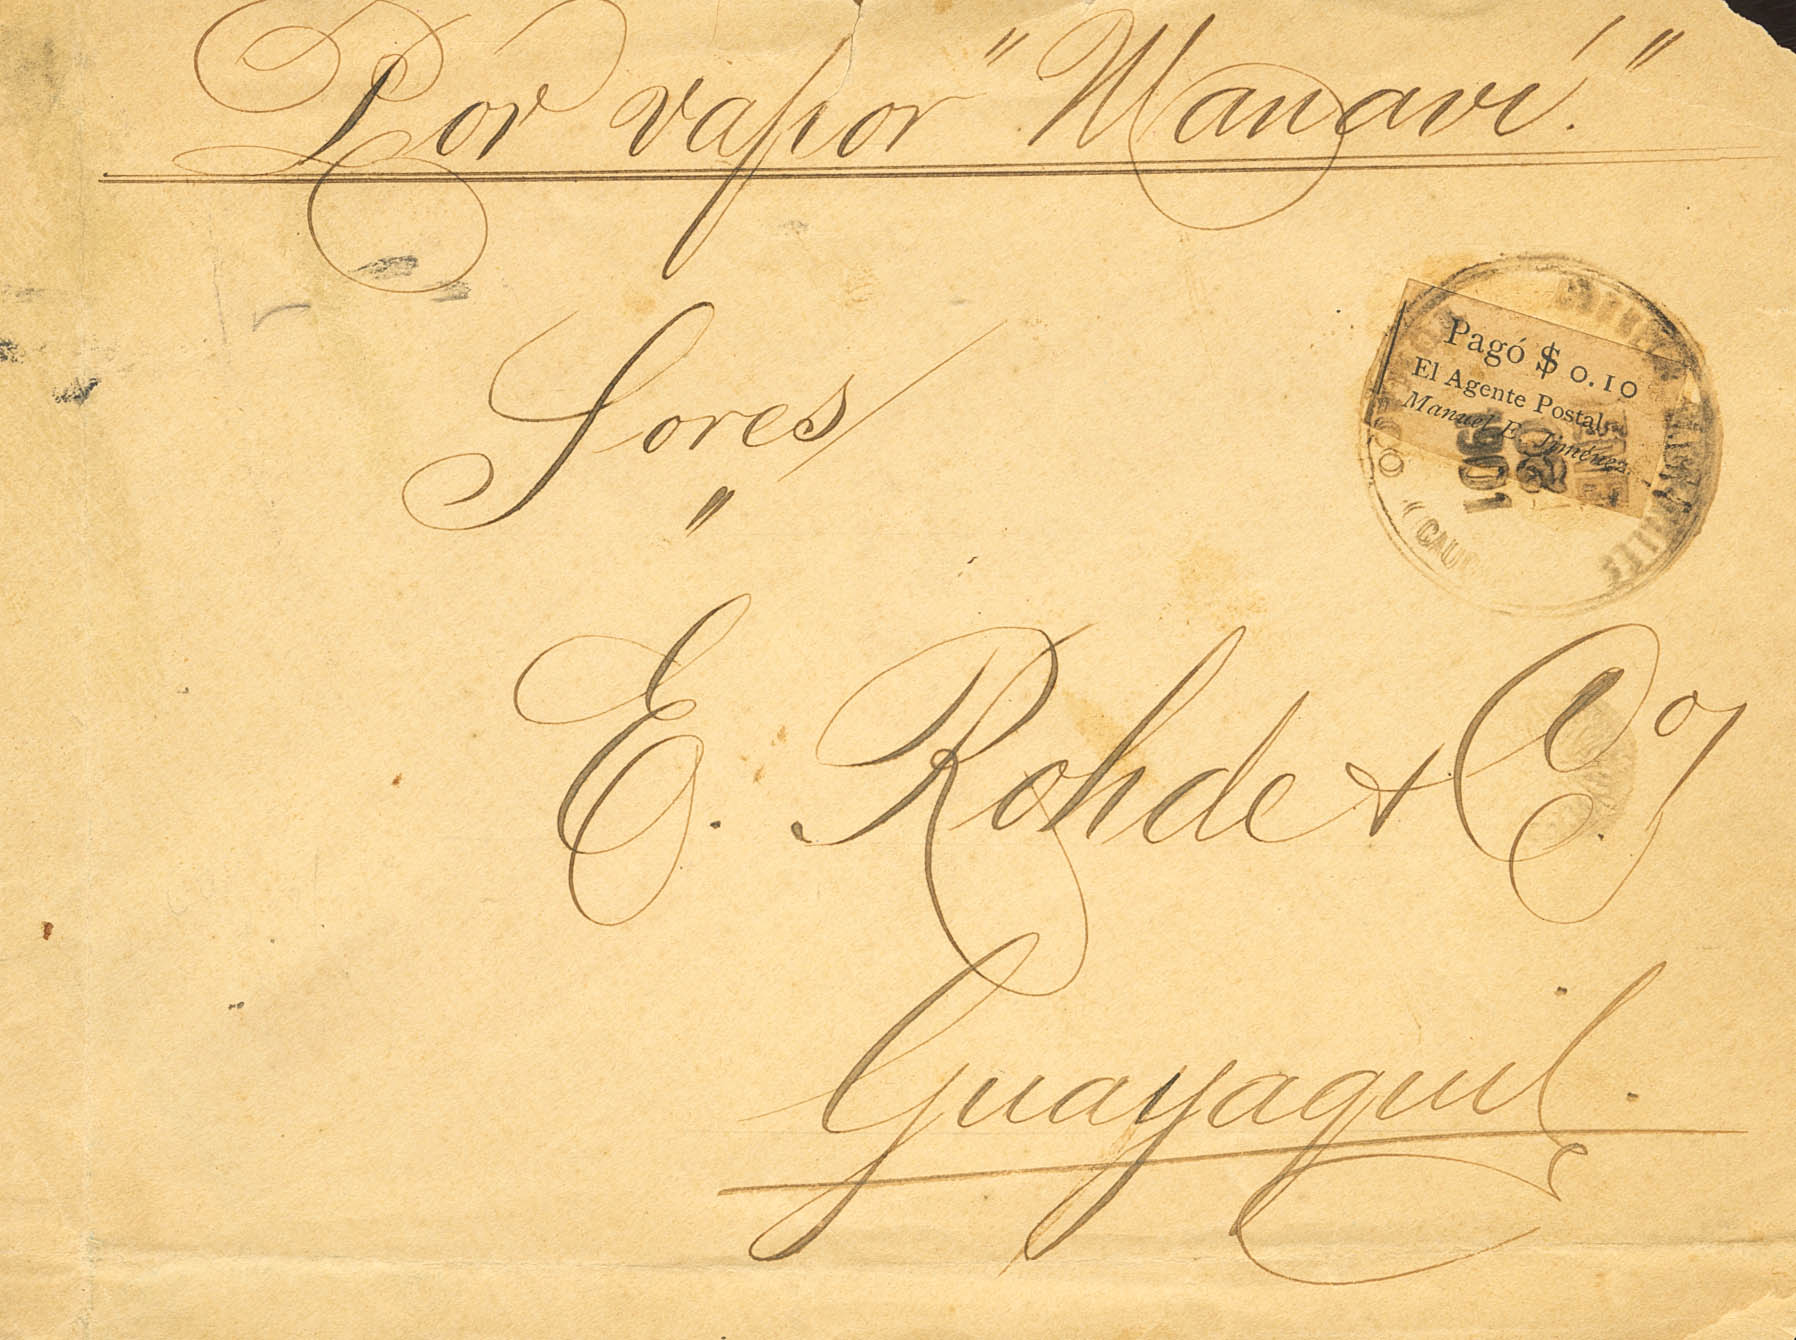 Por vapor "Manaví."
Sores
"
E. Rohde & Co
Guayaquil.
Pagó $ 0.10
El Agente Postal,
Manuel E. Jiménez.
20
1901